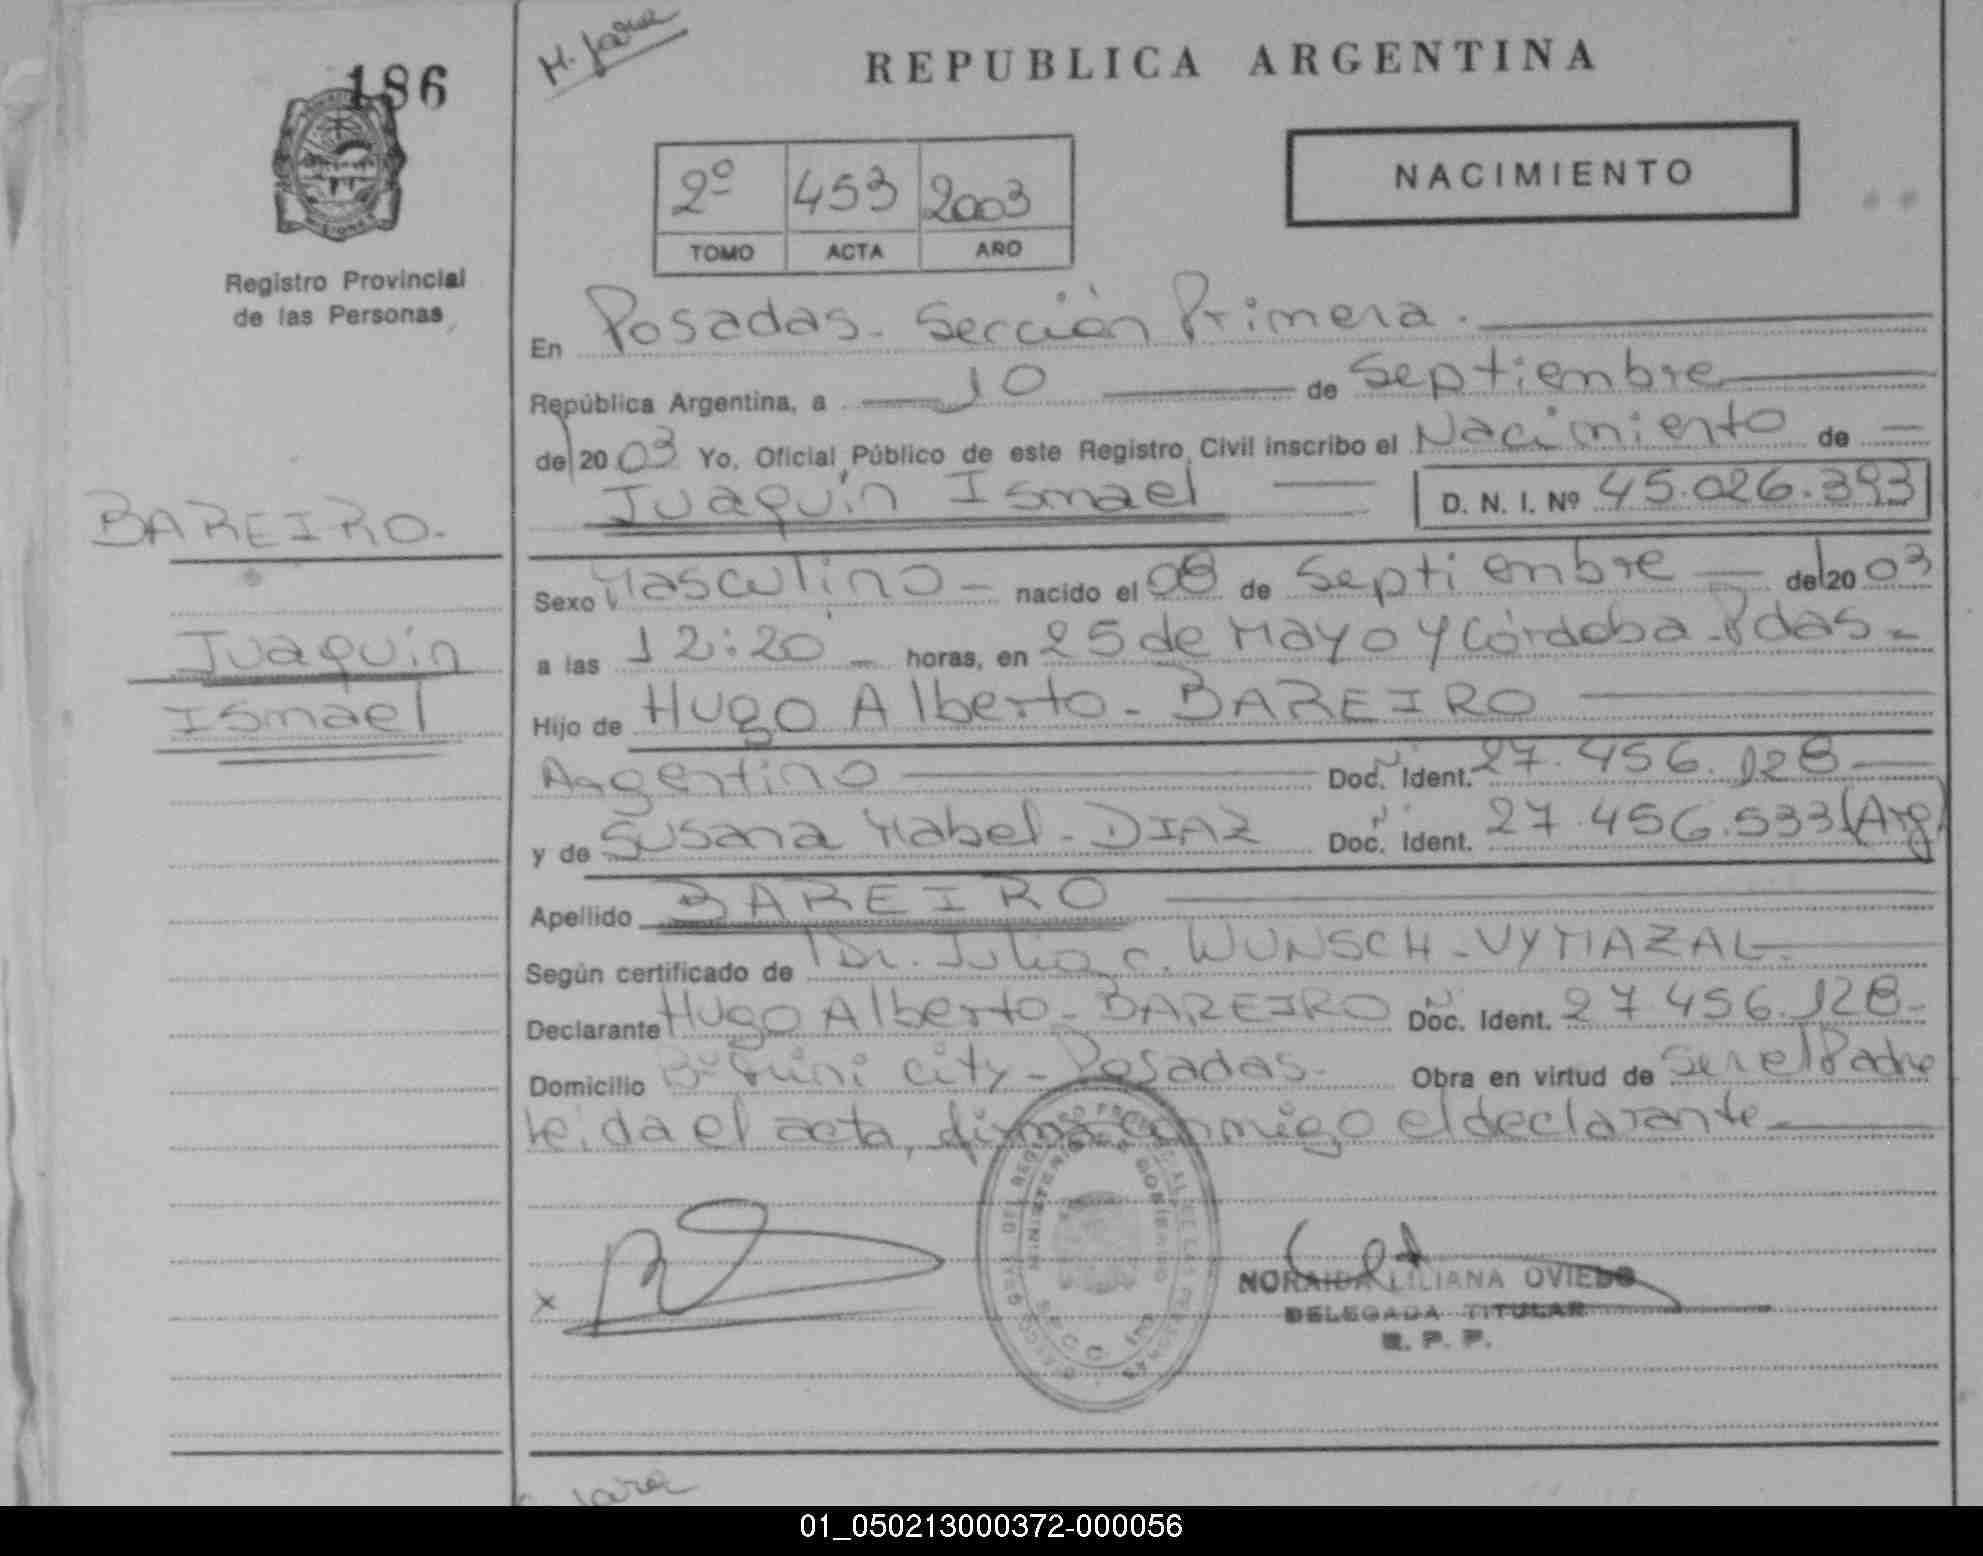 186
H. Jara
REPUBLICA ARGENTINA
NACIMIENTO
2º 453 2003
TOMO ACTA AÑO
Registro Provincial
de las Personas
En Posadas - Sección Primera.
República Argentina, a 10 de Septiembre
de 2003 Yo, Oficial Público de este Registro Civil inscribo el Nacimiento de
Juaquín Ismael D. N. I. Nº 45.026.393
BAREIRO.
Juaquín
Ismael
Sexo Masculino - nacido el 08 de Septiembre de 2003
a las 12:20 horas, en 25 de Mayo y Córdoba - Pdas -
Hijo de Hugo Alberto - BAREIRO
Argentino Doc. Ident. 27.456.128
y de Susana Mabel - DIAZ Doc. Ident. 27.456.533 (Arg)
Apellido BAREIRO
Según certificado de Dr. Julio C. WUNSCH - VYMAZAL -
Declarante Hugo Alberto - BAREIRO Doc. Ident. 27 456.128 -
Domicilio city - Posadas - Obra en virtud de Ser el Padre
leida el acta, firma conmigo el declarante
x
NORAIDA LILIANA OVIEDO
DELEGADA TITULAR
R. P. P.
Jara
01_050213000372-000056